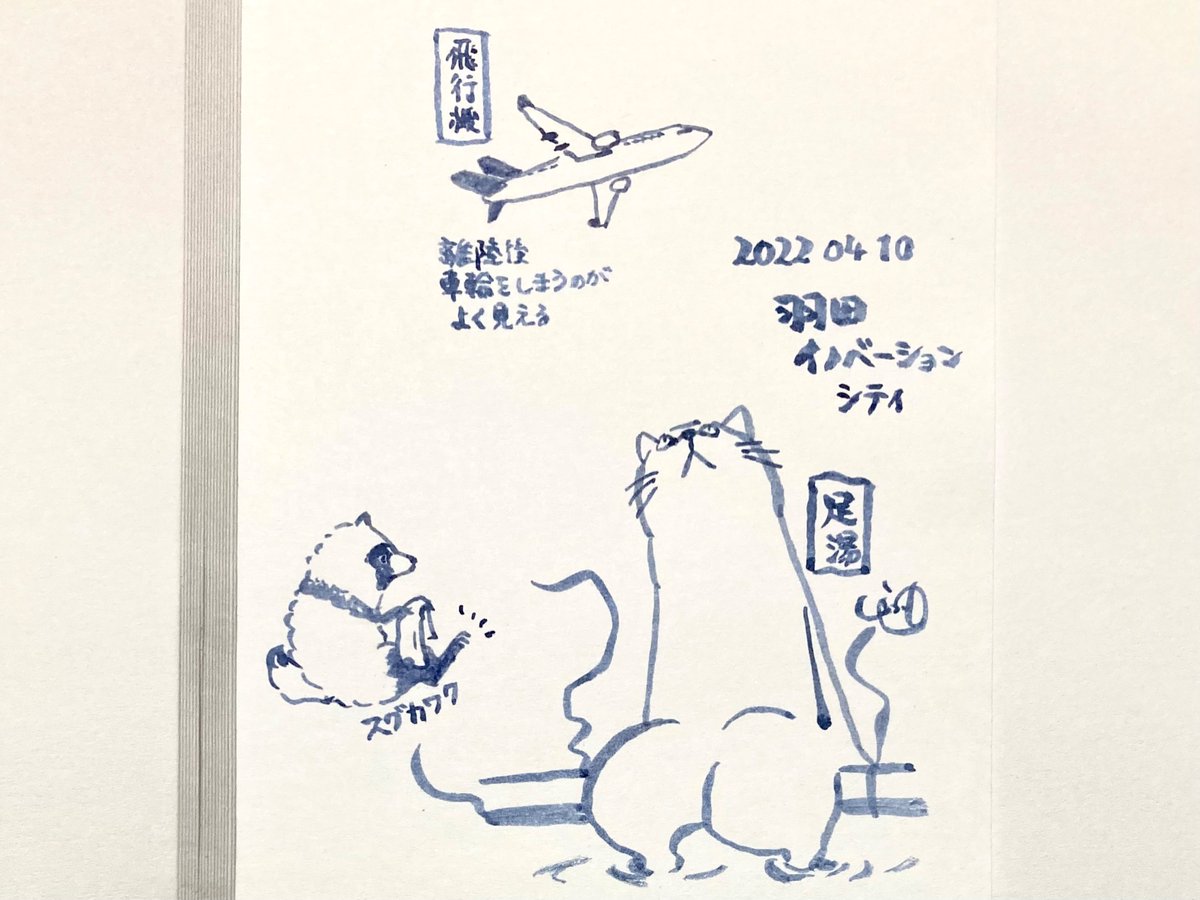 飛行機
離陸後
車輪をしまうのが
よく見える
2022 04 10
羽田
イノベーション
シティ
足湯
スグカワク